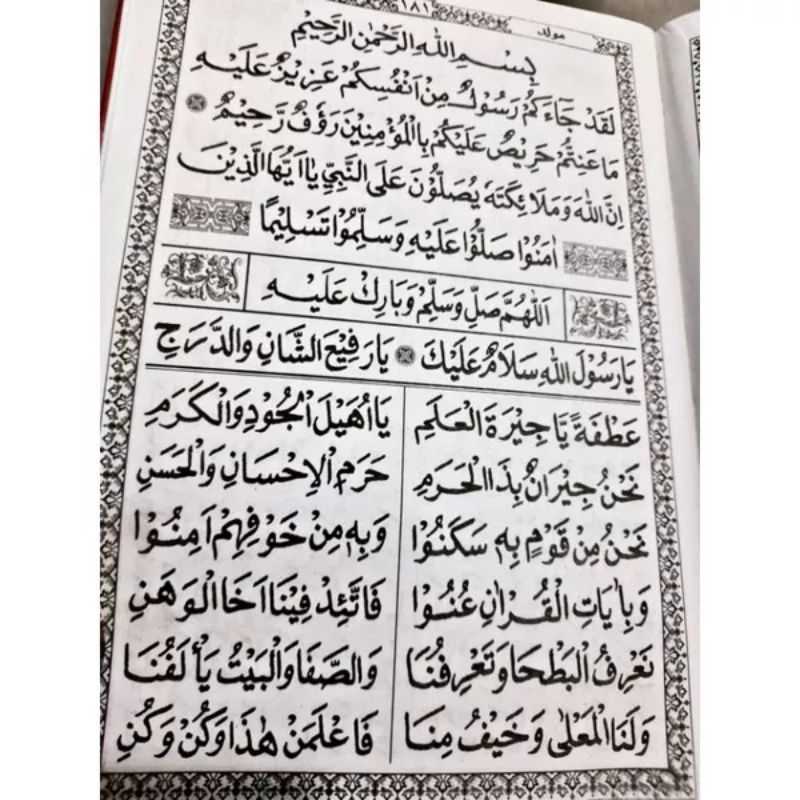 مولد ١٨١
بِسْمِ اللهِ الرَّحْمٰنِ الرَّحِيْمِ
لَقَدْ جَاءَكُمْ رَسُوْلٌ مِنْ اَنْفُسِكُمْ عَزِيْزٌ عَلَيْهِ
مَا عَنِتُّمْ حَرِيْصٌ عَلَيْكُمْ بِالْمُؤْمِنِيْنَ رَؤُفٌ رَّحِيْمٌ
اِنَّ اللهَ وَمَلَائِكَتَهٗ يُصَلُّوْنَ عَلَى النَّبِيِّ يَااَيُّهَا الَّذِيْنَ
اٰمَنُوْا صَلُّوْا عَلَيْهِ وَسَلِّمُوْا تَسْلِيْمًا
اَللّٰهُمَّ صَلِّ وَسَلِّمْ وَبَارِكْ عَلَيْهِ
يَارَسُوْلَ اللهِ سَلَامٌ عَلَيْكَ يَارَفِيْعَ الشَّانِ وَالدَّرَجِ
عَطْفَةً يَّاجِيْرَةَ الْعَلَمِ يَااُهَيْلَ الْجُوْدِ وَالْكَرَمِ
نَحْنُ جِيْرَانٌ بِذَا الْحَرَمِ حَرَمِ الْاِحْسَانِ وَالْحَسَنِ
نَحْنُ مِنْ قَوْمٍ بِهٖ سَكَنُوْا وَبِهٖ مِنْ خَوْفِهِمْ اَمِنُوْا
وَبِاٰيَاتِ الْقُرْاٰنِ عُنُوْا فَاتَّئِدْ فِيْنَا اَخَا الْوَهَنِ
نَعْرِفُ الْبَطْحَا وَتَعْرِفُنَا وَالصَّفَا وَالْبَيْتُ يَأْلَفُنَا
وَلَنَا الْمَعْلٰى وَخَيْفُ مِنَا فَاعْلَمَنْ هٰذَا وَكُنْ وَكُنِ